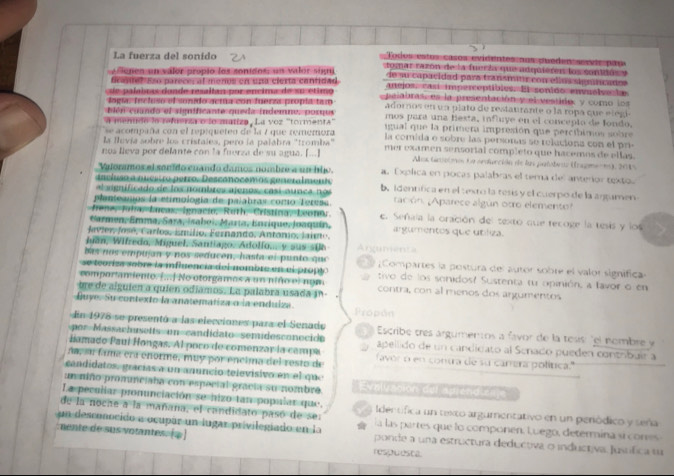 La fuerza del sonido
¿Tienen un valor propio los sonidos, un valor signi
ficante? Eso parece; al menos en una cierta cantidad
de palabras donde resaltan por encima de su etimo
logía. Incluso el sonido actúa con fuerza propia tam
bién cuando el significante queda indemne, porque
a menudo lo refuerza o lo matiza. La voz "tormenta"
se acompaña con el repiqueteo de la t que rememora
la lluvia sobre los cristales, pero la palabra "tromba"
nos lleva por delante con la fuerza de su agua. [...]
Valoramos el sonido cuando damos nombre a un hijo,
incluso a nuestro perro. Desconocemos generalmente
el significado de los nombres ajenos, casi nunca nos
planteamos la etimología de palabras como Teresa,
Irene, Julia, Lucas, Ignacio, Ruth, Cristina, Leonor,
Carmen, Emma, Sara, Isabel, Marta, Enrique, Joaquín,
Javier, José, Carlos, Emilio, Fernando, Antonio, Jaime,
Juan, Wifredo, Miguel, Santiago, Adolfo... y sus síla-
bas nos empujan y nos seducen, hasta el punto que
se teoriza sobre la influencia del nombre en el propio
comportamiento. [...] No otorgamos a un niño el nom
bre de alguien a quien odiamos. La palabra usada in-
fluye. Su contexto la anatematiza o la endulza.
En 1978 se presentó a las elecciones para el Senado
por Massachusetts un candidato semidesconocido
llamado Paul Hongas. Al poco de comenzar la campa
ña, su fama era enorme, muy por encima del resto de
candidatos, gracias a un anuncio televisivo en el que
un niño pronunciaba con especial gracia su nombre.
La peculiar pronunciación se hizo tan popular que,
de la noche a la mañana, el candidato pasó de ser
un desconocido a ocupar un lugar privilegiado en la
mente de sus votantes. [...]
Todos estos casos evidentes nos pueden servir para
tomar razón de la fuerza que adquieren los sonidos y
de su capacidad para transmitir con ellos significados
anejos, casi imperceptibles. El sonido envuelve la
palabras, es la presentación y el vestido, y como los
adornos en un plato de restaurante o la ropa que elegi-
mos para una fiesta, influye en el concepto de fondo,
igual que la primera impresión que percibimos sobre
la comida e sobre las personas se relaciona con el pri-
mer examen sensorial completo que hacemos de ellas.
a. Explica en pocas palabras el tema del anterior texto.
b. Identifica en el texto la tesis y el cuerpo de la argumen-
tación. ¿Aparece algún otro elemento?
c. Señala la oración del texto que recoge la tesis y los
argumentos que utiliza.
Argumenta
¿Compartes la postura del autor sobre el valor significa-
tivo de los sonidos? Sustenta tu opinión, a favor o en
contra, con al menos dos argumentos.
Propón
Escribe tres argumentos a favor de la tesis "el nombre y
apellido de un candidato al Senado pueden contribuir a
favor o en contra de su carrera política."
Evaluación del aprendizaje
Identifica un texto argumentativo en un periódico y seña-
la las partes que lo componen. Luego, determina si corres-
ponde a una estructura deductiva o inductiva. Justifica tu
respuesta.